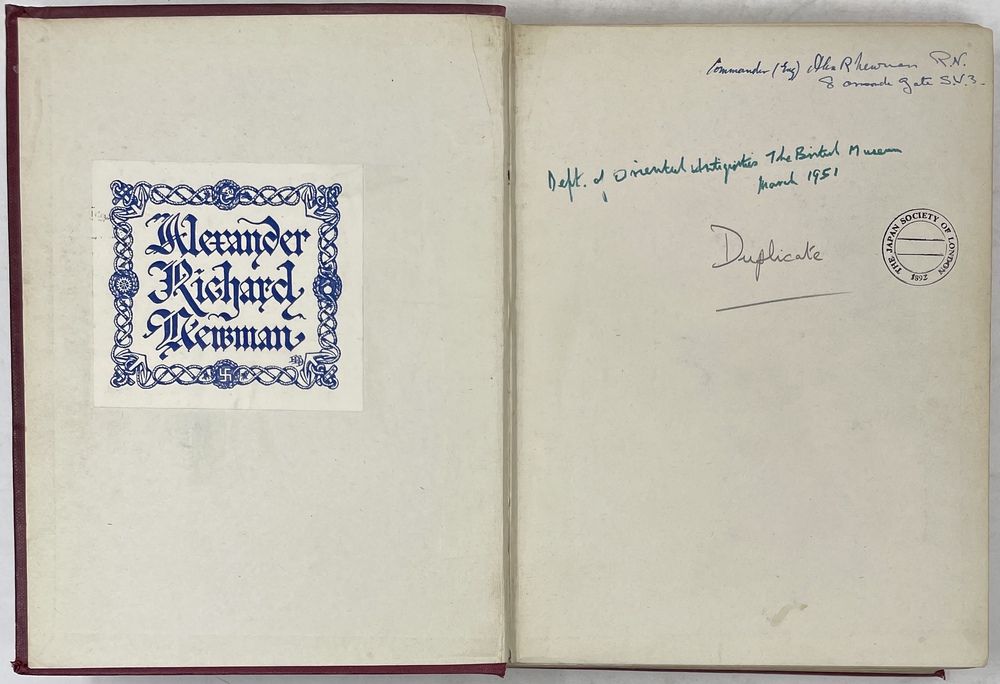 Alexander
Richard
Newman
Commander (Eng) Alex R Newman R.N.
8 Gate S.W.3.
Dept. of Oriental Antiquities The British Museum
March 1951
Duplicate
THE JAPAN SOCIETY OF LONDON
1892